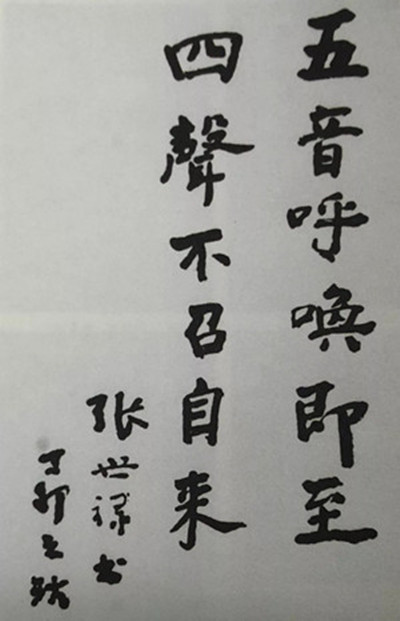 五音呼唤即至
四聲不召自来
张世禄书
丁卯之秋